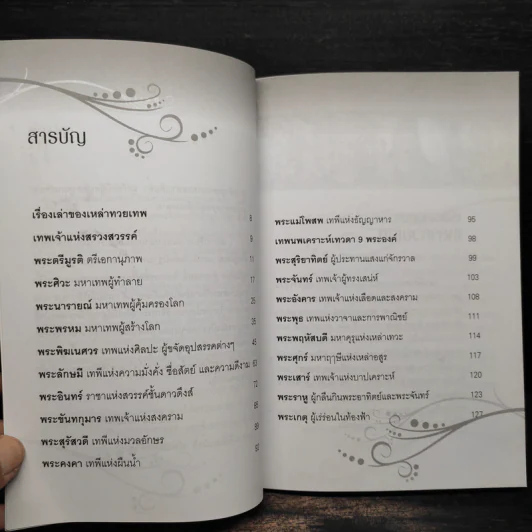 สารบัญ
เรื่องเล่าของเหล่าทวยเทพ 8
เทพเจ้าแห่งสรวงสวรรค์ 9
พระตรีมูรติ ตรีเอกานุภาพ 11
พระศิวะ มหาเทพผู้ทำลาย 17
พระนารายณ์ มหาเทพผู้คุ้มครองโลก 25
พระพรหม มหาเทพผู้สร้างโลก
พระพิฆเนศวร เทพแห่งศิลปะ ผู้ขจัดอุปสรรคต่างๆ 45
พระลักษมี เทพีแห่งความมั่งคั่ง ซื่อสัตย์ และความดีงาม
พระอินทร์ ราชาแห่งสวรรค์ชั้นดาวดึงส์ 72
พระขันทกุมาร เทพเจ้าแห่งสงคราม
พระสุรัสวดี เทพีแห่งมวลอักษร
พระคงคา เทพีแห่งผืนน้ำ
พระแม่โพสพ เทพีแห่งธัญญาหาร 95
เทพนพเคราะห์เทวดา 9 พระองค์ 98
พระสุริยาทิตย์ ผู้ประทานแสงแก่จักรวาล 99
พระจันทร์ เทพเจ้าผู้ทรงเสน่ห์ 103
พระอังคาร เทพเจ้าแห่งเลือดและสงคราม 108
พระพุธ เทพแห่งวาจาและการพาณิชย์ 111
พระพฤหัสบดี มหาคุรุแห่งเหล่าเทวะ 114
พระศุกร์ มหาฤาษีแห่งเหล่าอสูร 117
พระเสาร์ เทพเจ้าแห่งบาปเคราะห์ 120
พระราหู ผู้กลืนกินพระอาทิตย์และพระจันทร์ 123
พระเกตุ ผู้เร่ร่อนในท้องฟ้า 127